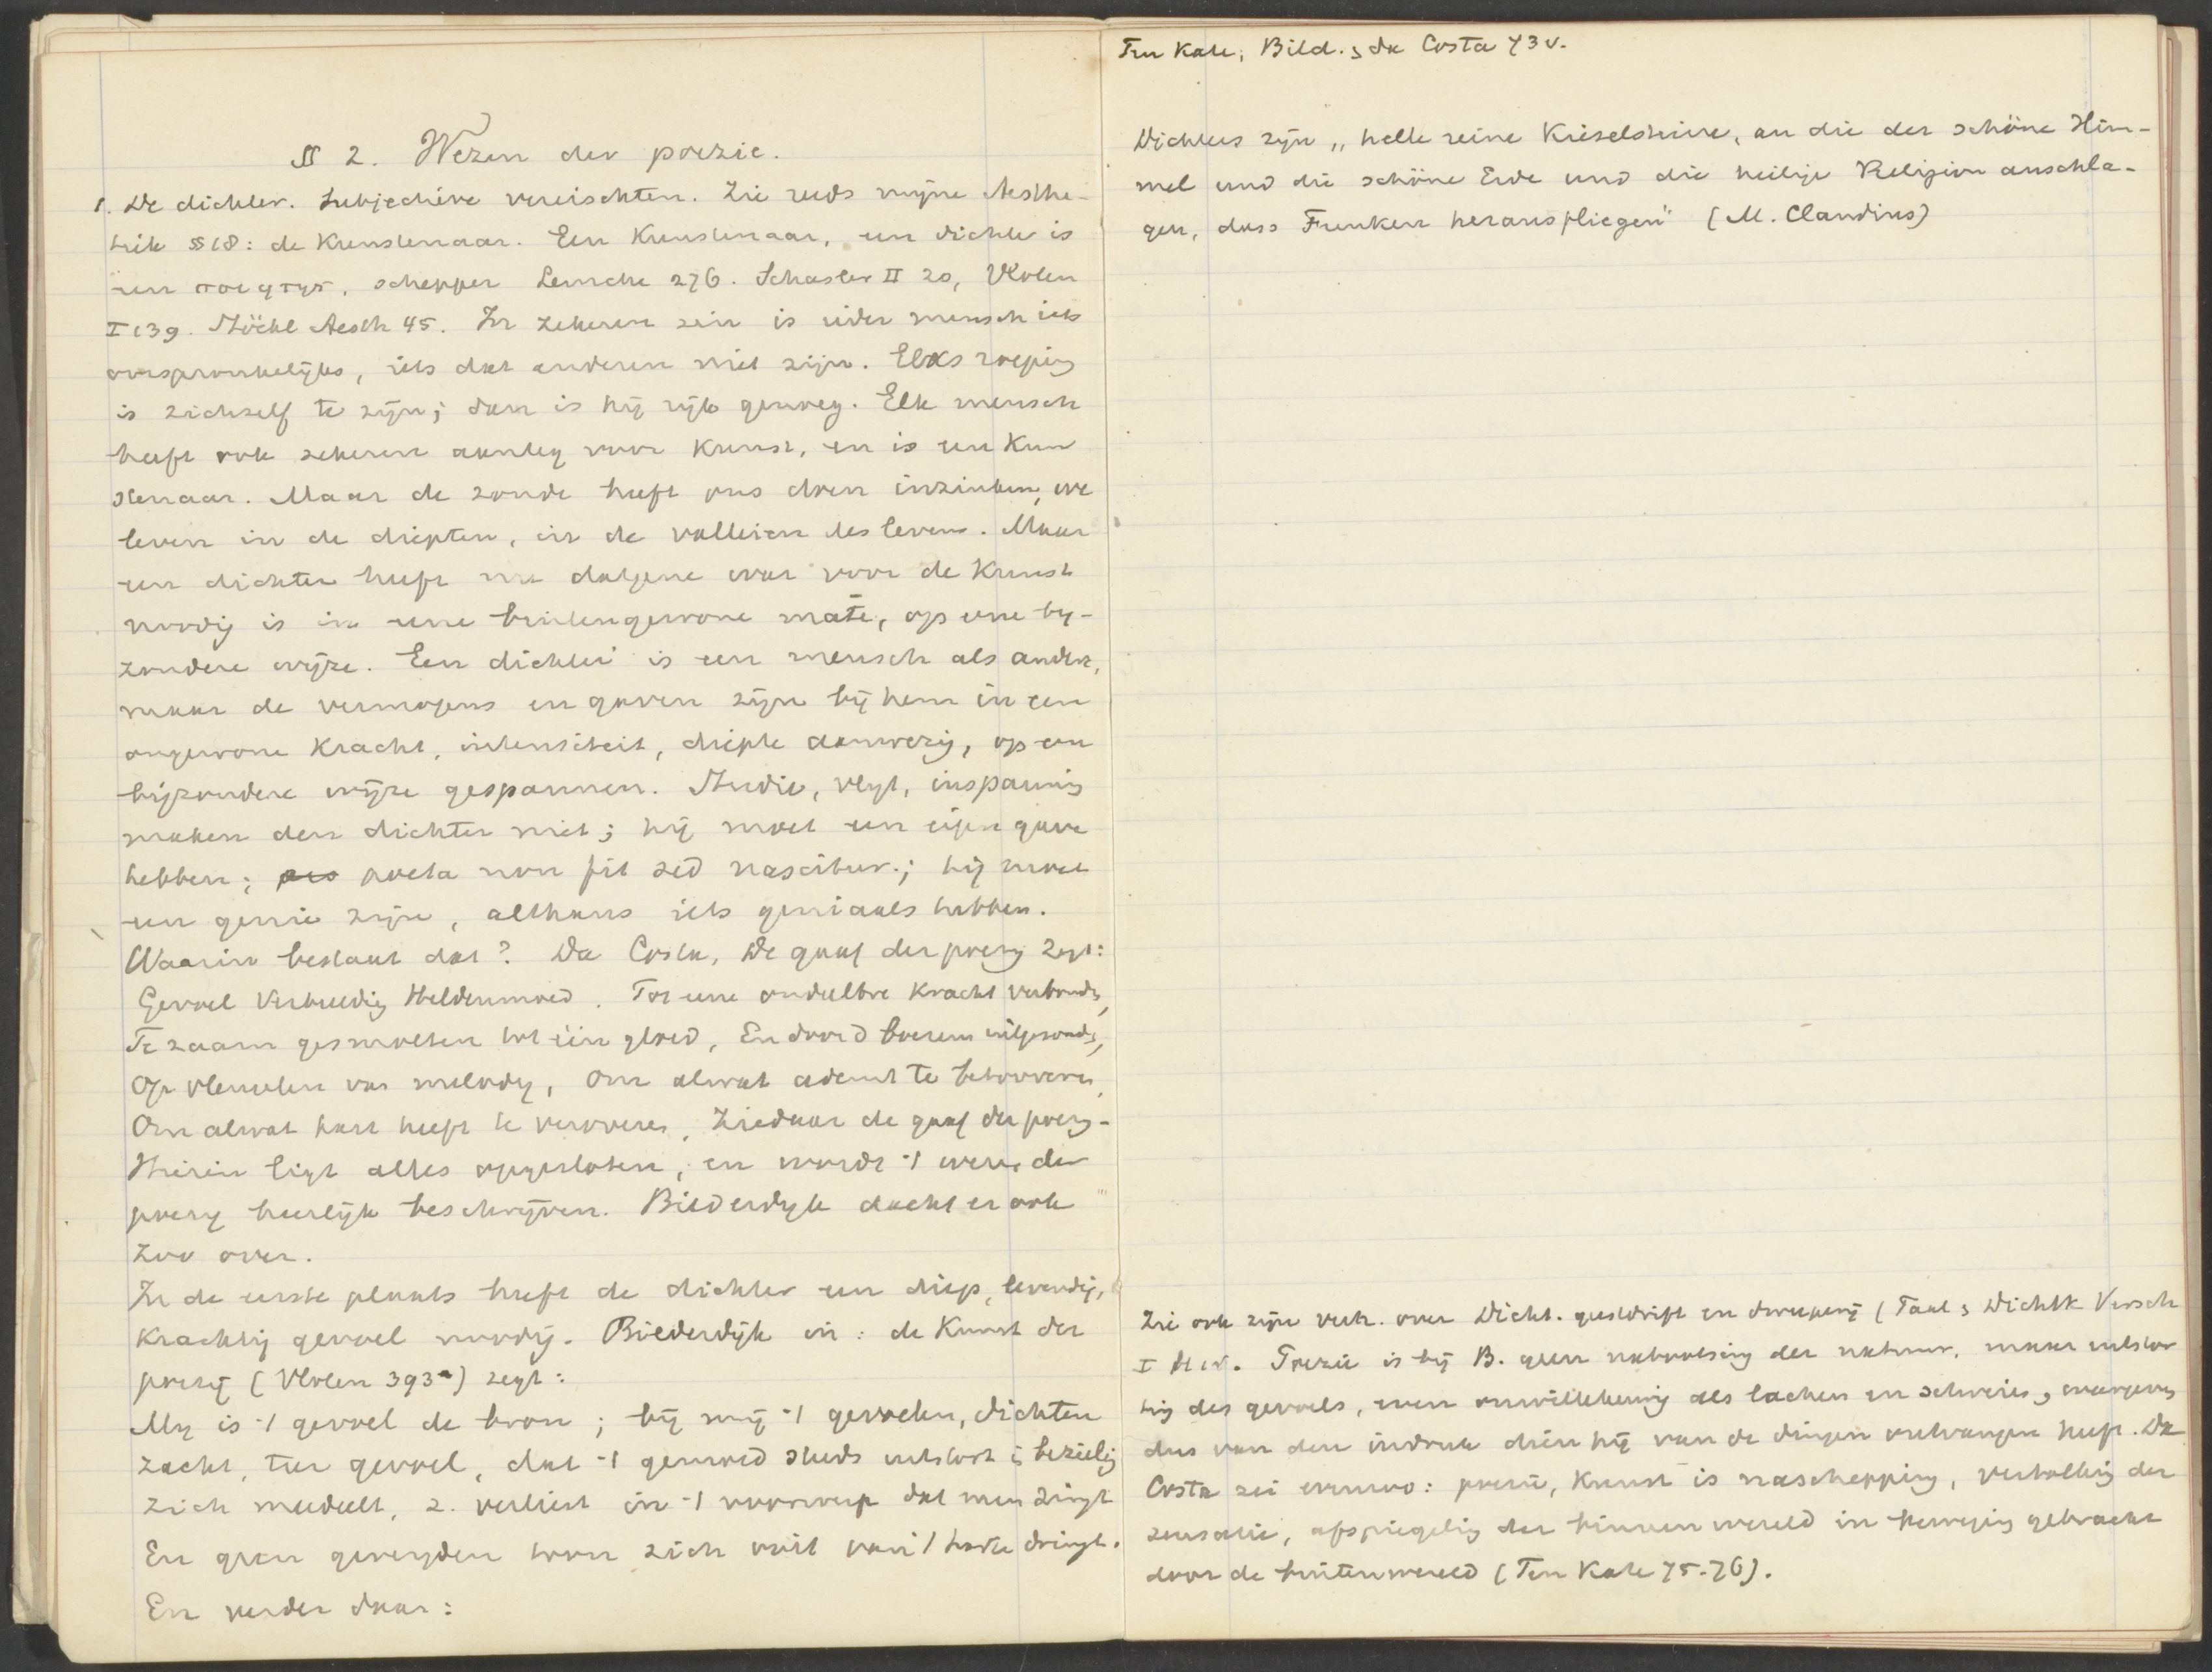 § 2. Wezen der poezie.
1. De dichter. Subjectieve vereischten. Zie reeds mijne Aesthe-
tiek § 18: de Kunstenaar. Een Kunstenaar, een dichter is
een ποιητης, schepper Lemcke 276. Schasler II 20, Vloten
I 139. Stöckl Aesth 45. In zekeren zin is ieder mensch iets
oorspronkelijks, iets dat anderen niet zijn. Elks roeping
is zichzelf te zijn; dan is hij rijk genoeg. Elk mensch
heeft ook zekeren aanleg voor Kunst, en is een Kun
stenaar. Maar de zonde heeft ons doen inzinken, we
leven in de diepten, in de valleien des levens. Maar
een dichter heeft nu datgene wat voor de Kunst
noodig is in eene buitengewone mate, op eene by-
zondere wijze. Een dichter is een mensch als andere,
maar de vermogens en gaven zijn bij hem in een
ongewone Kracht, intensiteit, diepte aanwezig, op een
bijzondere wijze gespannen. Studie, vlyt, inspanning
maken den dichter niet; hij moet een eigen gave
hebben; poeta non fit sed nascitur.; hij moet
een genie zijn, althans iets geniaals hebben.
Waarin bestaat dat? Da Costa, De gaaf der poezy zegt:
Gevoel Verbeelding Heldenmoed. Tot eene ondeelbre Kracht verbonden,
Te zaam gesmolten tot één gloed, En door d boezem uitgezonden,
Op vleugelen van melody, Om alwat ademt te betooveren,
Om alwat hart heeft te veroveren, Ziedaar de gaaf der poezy-
Hierin ligt alles opgesloten, en wordt 't wezen der
poezy heerlijk beschrijven. Bilderdyk dacht er ook
zoo over.
In de eerste plaats heeft de dichter een diep, levendig,
Krachtig gevoel noodig. Bilderdijk in: de Kunst der
poezij (Vloten 393a) zegt:
My is 't gevoel de bron; bij mij 't gevoelen, dichten
Zacht, teer gevoel, dat 't gemoed steeds uitstort & bezielig
Zich meedeelt, & verliest in 't voorwerp dat men zingt
En geen gereyden toon zich ooit van 't harte dringt.
En verder daar:
Ten Kate, Bild. & da Costa 73 v.
Dichters zijn „helle reine Kieselsteine, an die der schöne Him-
mel und die schöne Erde und die heilige Religion anschla-
gen, dass Funken herausfliegen" (M. Claudius)
Zie ook zijn verh. over Dicht. geestdrift en dweeperij (Taal & Dichtk Versch
I Poezie is bij B. geen nabootsing der natuur, maar uitstor
ting des gevoels, even onwillekeurig als lachen en schreien, weergevend
dus van den indruk dien hij van de dingen ontvangen heeft. Da
Costa zei evenzoo: poezie, Kunst is naschepping, vertolking der
sensatie, afspiegeling der binnenwereld in beweging gebracht
door de buitenwereld (Ten Kate 75-76).